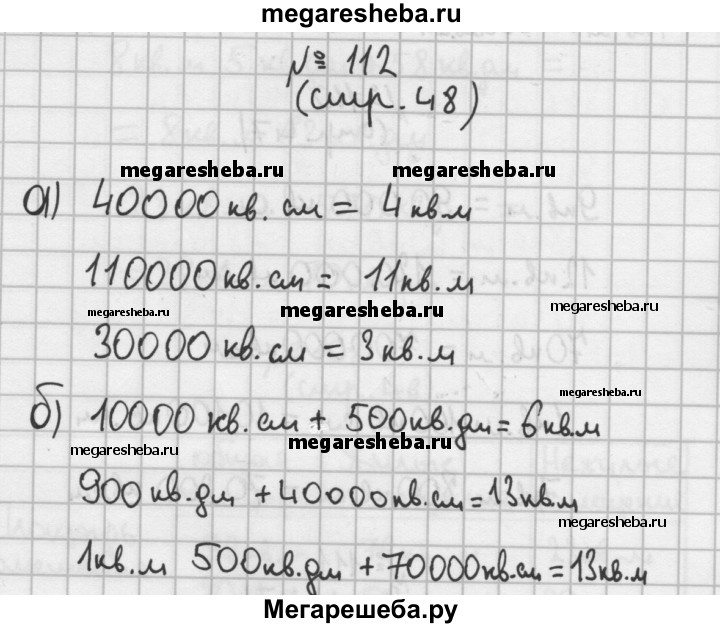 megaresheba.ru
№ 112
(стр. 48)
megaresheba.ru megaresheba.ru
а) 40000 кв. см = 4 кв.м
110000 кв. см = 11 кв. м
megaresheba.ru megaresheba.ru megaresheba.ru
30000 кв. см = 3 кв. м
megaresheba.ru
б) 10000 кв. см + 500 кв. дм = 6 кв.м
megaresheba.ru megaresheba.ru
900 кв. дм + 40000 кв. см = 13 кв.м
megaresheba.ru
1 кв. м 500 кв. дм + 70000 кв. см = 13 кв. м
Мегарешеба.ру